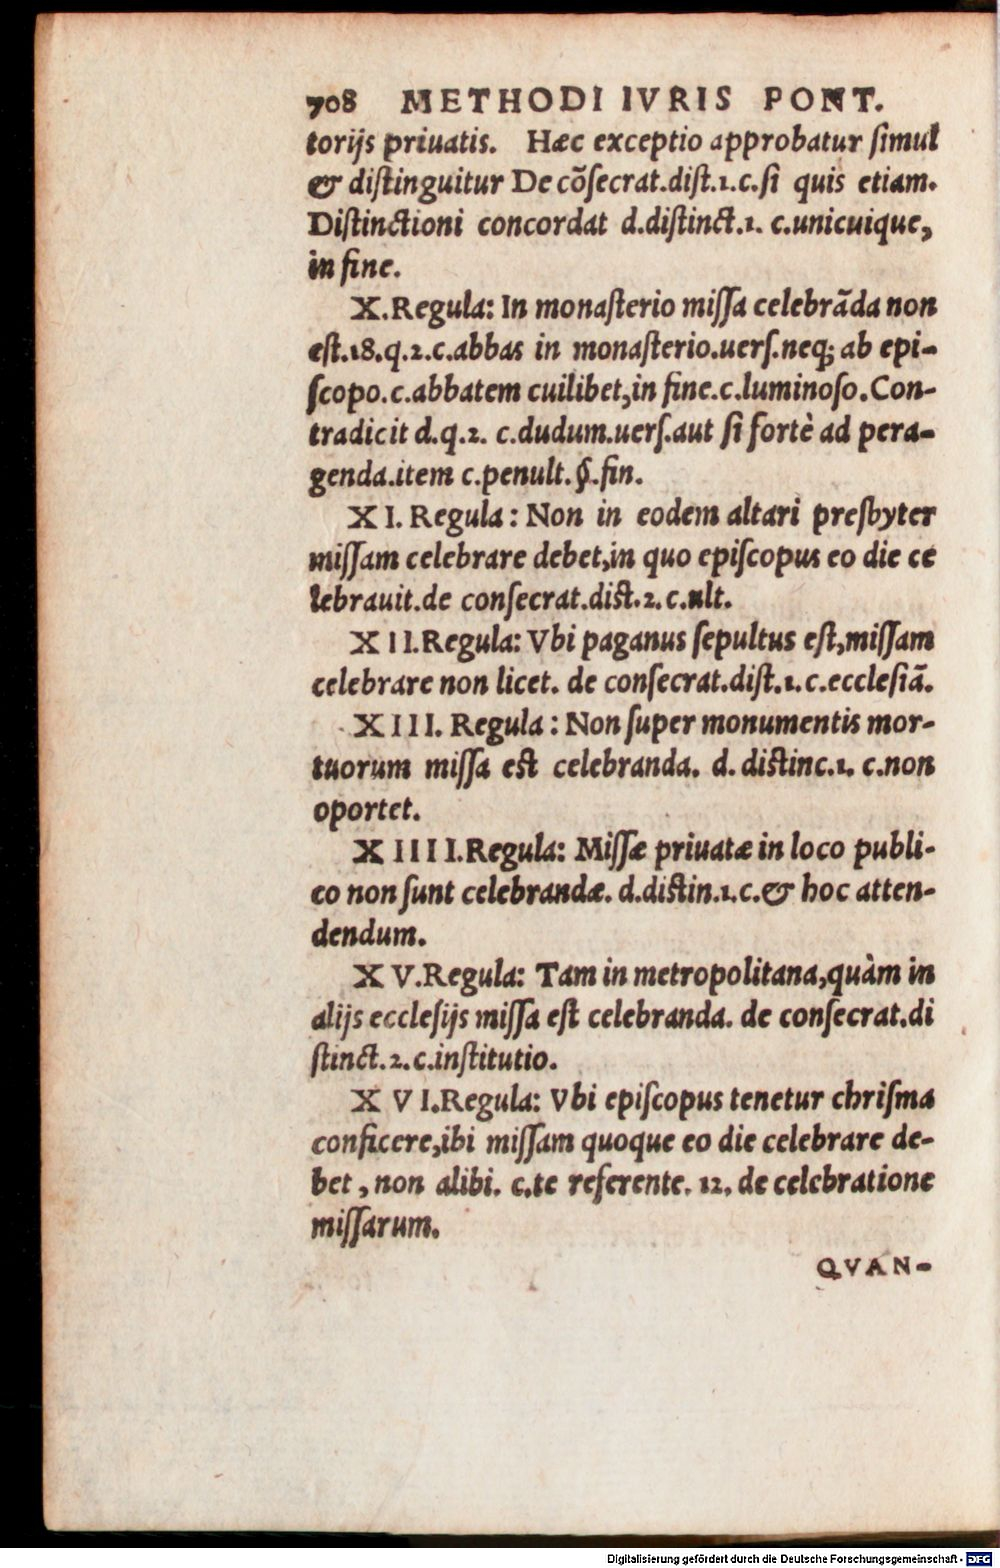 708 METHODI IVRIS PONT.
torijs priuatis. Hæc exceptio approbatur ſimul
& diſtinguitur De cõſecrat.diſt.1.c.ſi quis etiam.
Diſtinctioni concordat d.diſtinct.1. c.unicuique,
in fine.
X.Regula: In monaſterio miſſa celebrãda non
eſt.18.q.2.c.abbas in monaſterio.uerſ.neq; ab epi-
ſcopo.c.abbatem cuilibet,in fine.c.luminoſo.Con-
tradicit d.q.2. c.dudum.uerſ.aut ſi fortè ad pera-
genda.item c.penult.§.fin.
XI. Regula: Non in eodem altari presbyter
miſſam celebrare debet,in quo epiſcopus eo die ce
lebrauit.de conſecrat.diſt.2.c.ult.
XII.Regula: Vbi paganus ſepultus eſt,miſſam
celebrare non licet. de conſecrat.diſt.1.c.eccleſiã.
XIII. Regula: Non ſuper monumentis mor-
tuorum miſſa eſt celebranda. d. diſtinc.1. c.non
oportet.
XIIII.Regula: Miſſæ priuatæ in loco publi-
co non ſunt celebrandæ. d.diſtin.1.c.& hoc atten-
dendum.
XV.Regula: Tam in metropolitana,quàm in
alijs eccleſijs miſſa eſt celebranda. de conſecrat.di
ſtinct.2.c.inſtitutio.
XVI.Regula: Vbi epiſcopus tenetur chriſma
conficere,ibi miſſam quoque eo die celebrare de-
bet, non alibi. c.te referente. 12. de celebratione
miſſarum.
QVAN-
Digitalisierung gefördert durch die Deutsche Forschungsgemeinschaft - DFG